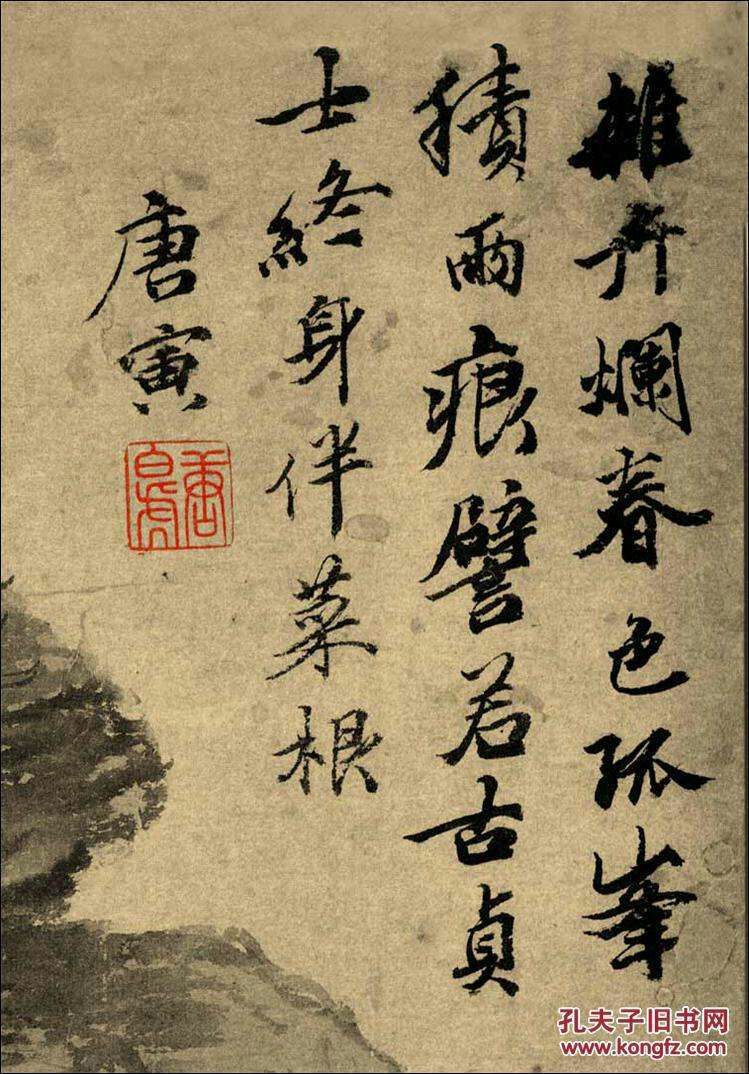 雜卉爛春色孤峯
積雨痕譬若古貞
士終身伴菜根
唐寅
唐白虎
孔夫子旧书网
www.kongfz.com